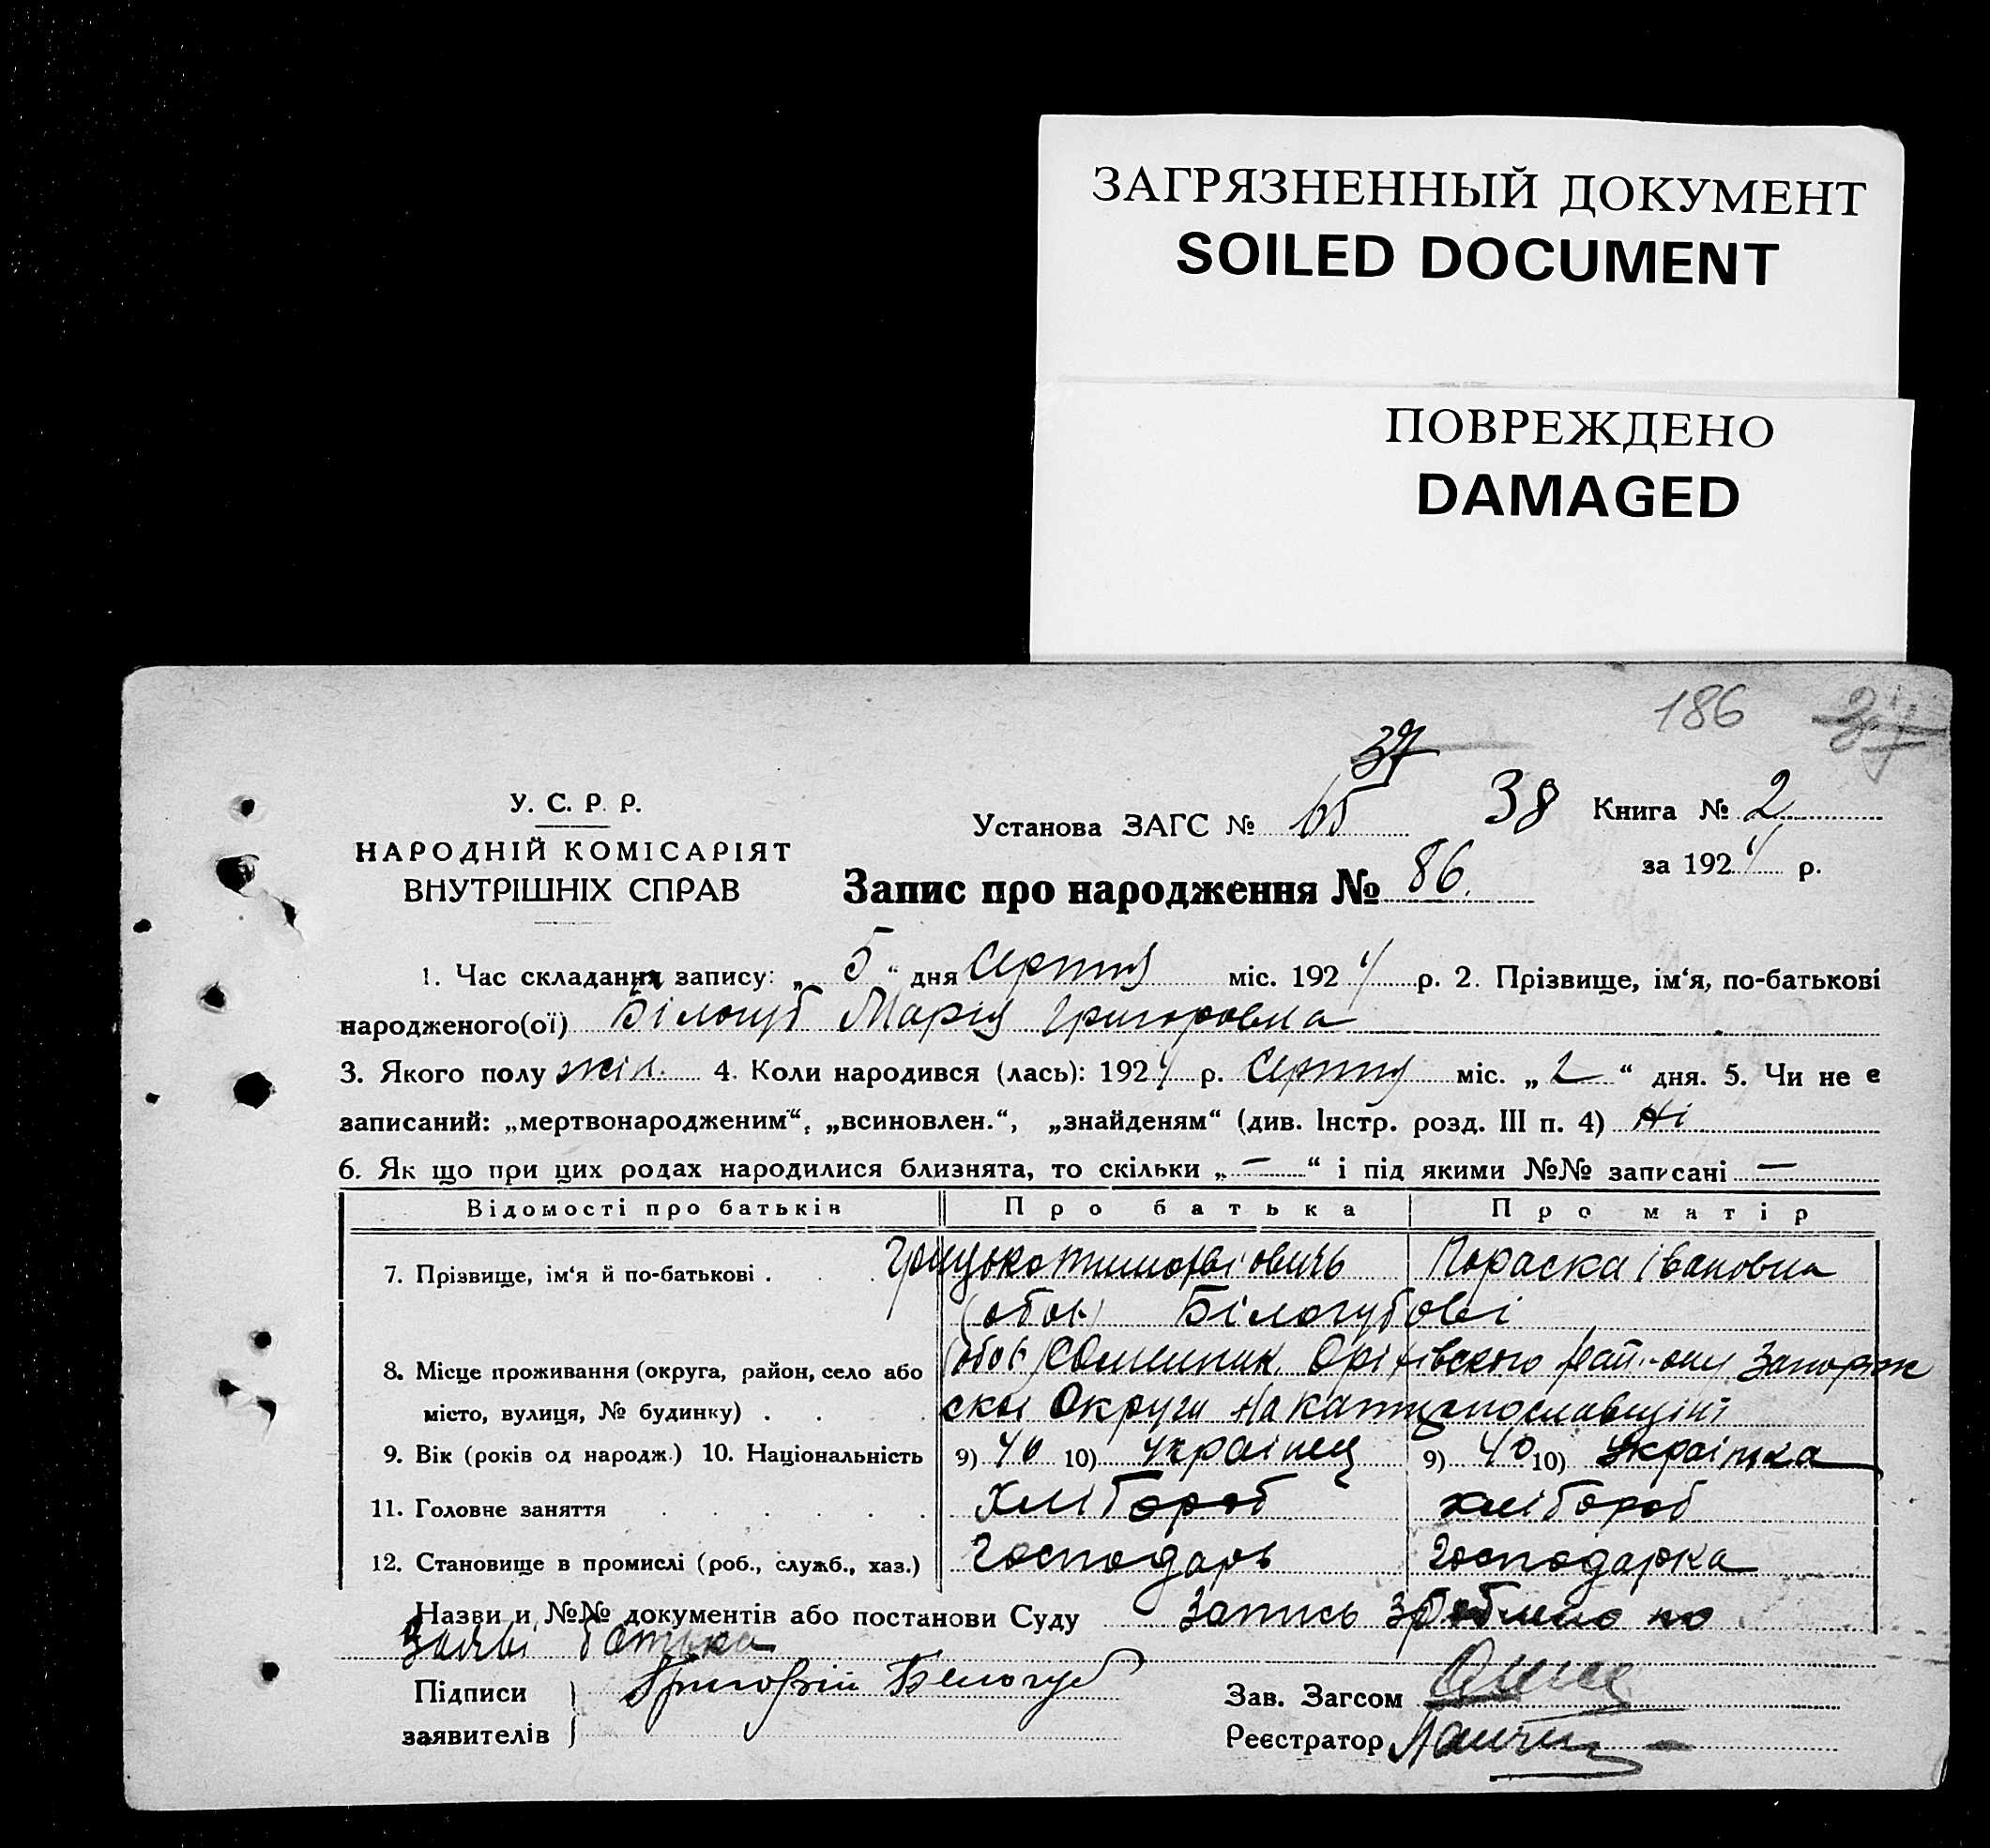 ЗАГРЯЗНЕННЫЙ ДОКУМЕНТ
SOILED DOCUMENT
ПОВРЕЖДЕНО
DAMAGED
186
37
У. С. Р. Р.
НАРОДНІЙ КОМІСАРІЯТ
ВНУТРІШНІХ СПРАВ
Установа ЗАГС № 65 38 Книга № 2
за 1924 р.
Запис про народження № 86.
1. Час складання запису: „ 5 “ дня Серпня міс. 1924 р. 2. Прізвище, ім‘я, по-батькові
народженого(ої) Білогуб Марія Григоровна
3. Якого полу жін. 4. Коли народився (лась): 1924 р. Серпня міс. „ 2 “ дня. 5. Чи не е
записаний: „мертвонародженим“, „всиновлен.“, „знайденям“ (див. Інстр. розд. III п. 4) Ні
6. Як що при цих родах народилися близнята, то скільки „ — “ і під якими №№ записані —
Відомості про батьків Про батька Про матір
7. Прізвище, ім‘я й по-батькові . . . Грицько Тимофіовичь Параска Івановна
(обоє) Білогубові
8. Місце проживання (округа, район, село або (обоє) Оріхівского район-ону Запоріж
місто, вулиця, № будинку) . . . скої Округи на Катеринославщині
9. Вік (років од народж.) 10. Національність 9) 40 10) українец 9) 40 10) українка
11. Головне заняття . . . . . . хлібороб хлібороб
12. Становище в промислі (роб., служб., хаз.) Господарь Господарка
Назви и №№ документів або постанови Суду Запись зроблено по
заяві батька
Підписи Григорій Белогуб Зав. Загсом
заявителів Реєстратор